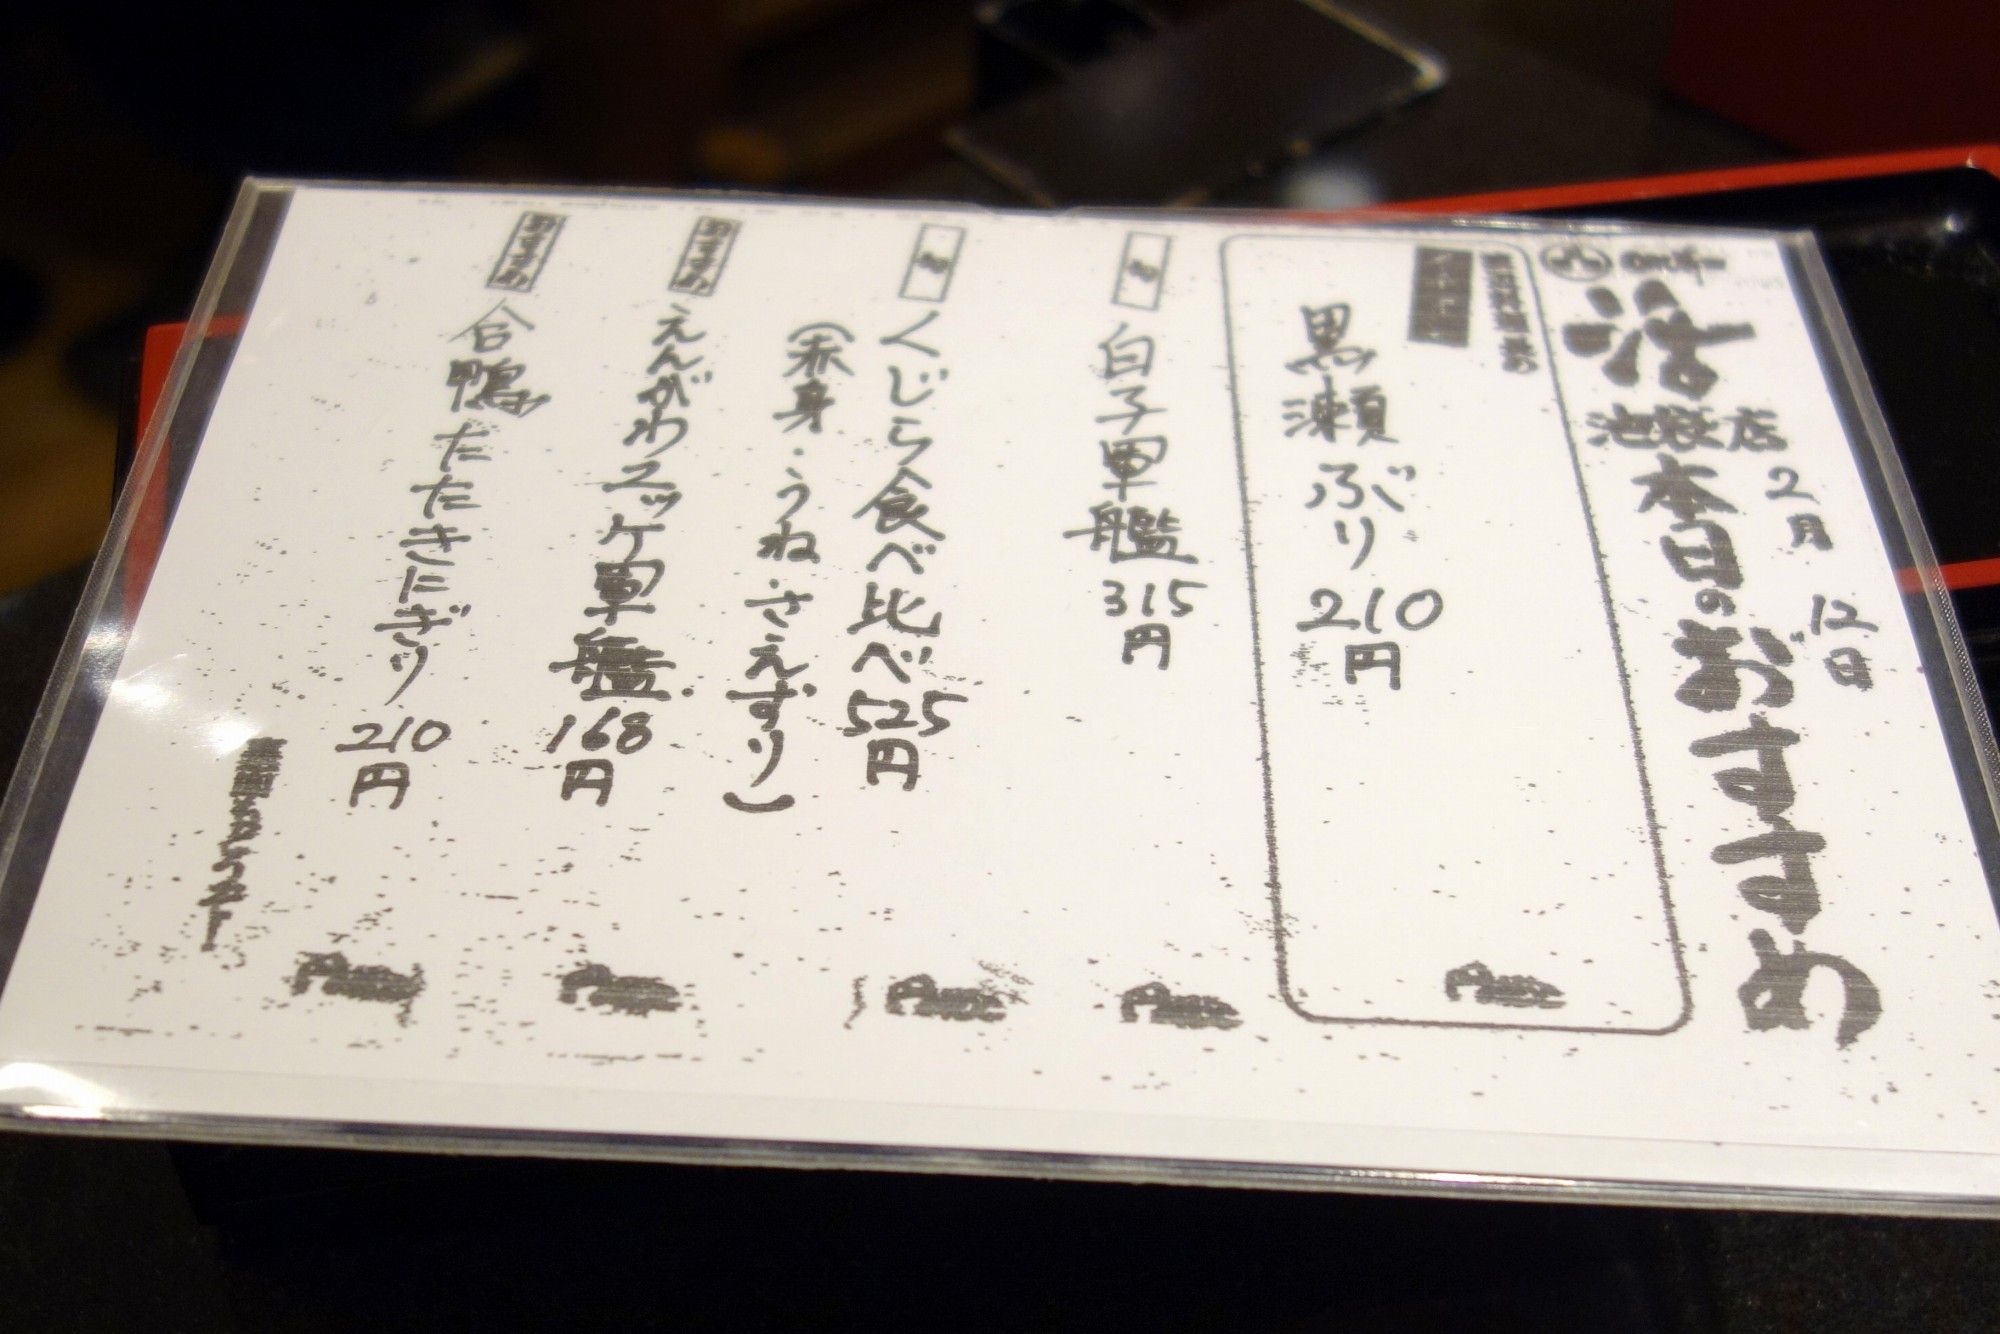 活
池袋店
本日のおすすめ
2月12日
黒瀬ぶり 210円
旬
白子軍艦 315円
旬
くじら食べ比べ 525円
(赤身・うね・さえずり)
おすすめ
えんがわユッケ軍艦 168円
おすすめ
合鴨たたきにぎり 210円